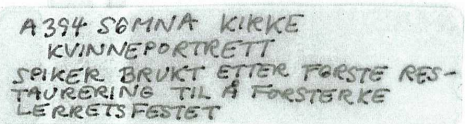 A394 SØMNA KIRKE
KVINNEPORTRETT
SPIKER BRUKT ETTER FØRSTE RES-
TAURERING TIL Å FORSTERKE
LERRETSFESTET